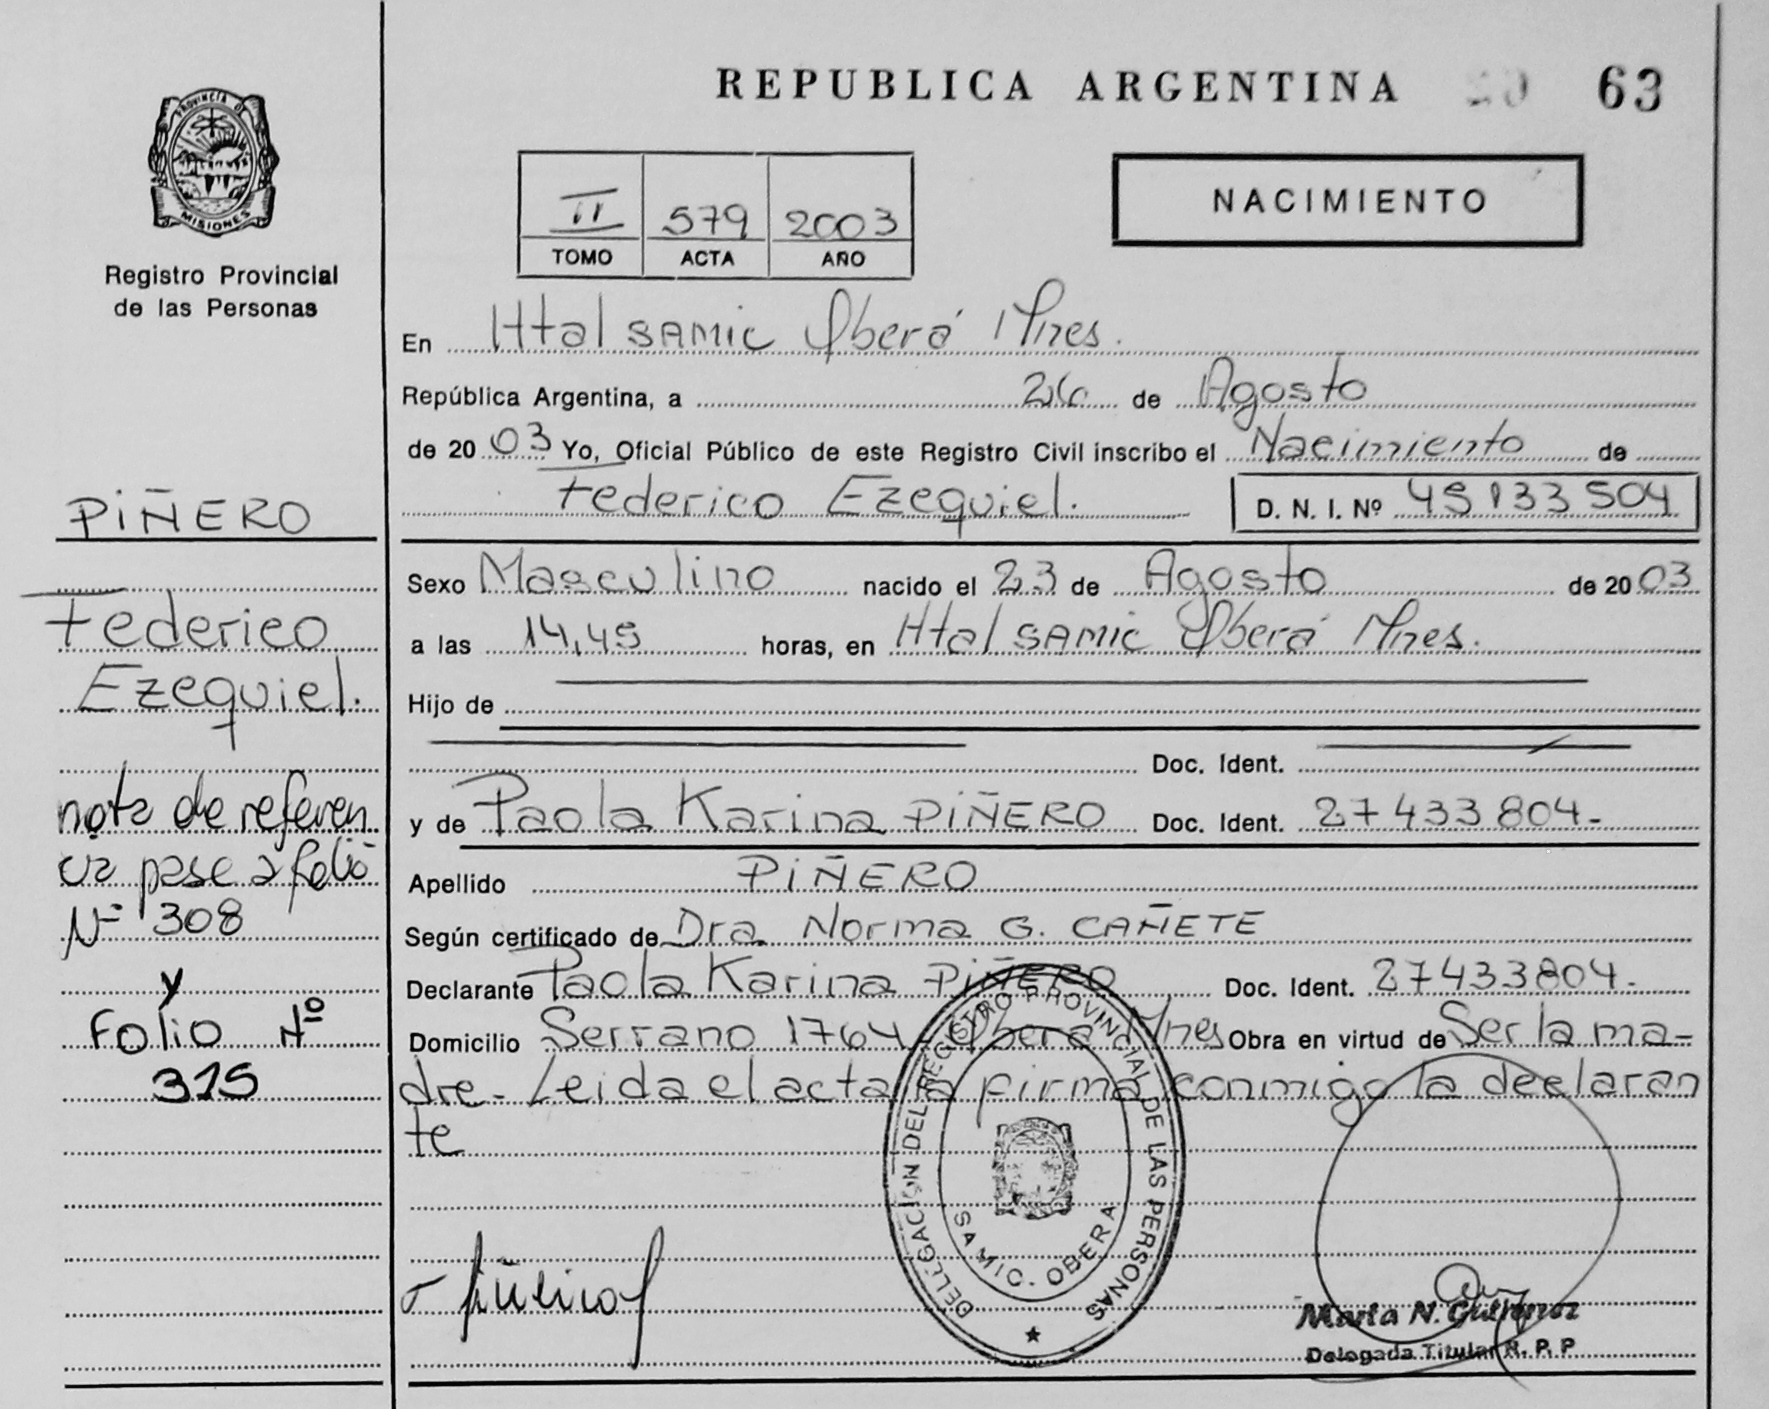 REPUBLICA ARGENTINA 20 63
PROVINCIA DE
MISIONES
Registro Provincial
de las Personas
II 579 2003
TOMO ACTA AÑO
NACIMIENTO
En Htal SAMIC Oberá Mnes.
República Argentina, a 26 de Agosto
de 20 03 Yo, Oficial Público de este Registro Civil inscribo el Nacimiento de
Federico Ezequiel. D. N. I. Nº 45133504
Sexo Masculino nacido el 23 de Agosto de 20 03
a las 14,45 horas, en Htal SAMIC Oberá Mnes.
Hijo de
Doc. Ident.
y de Paola Karina PIÑERO Doc. Ident. 27433804-
Apellido PIÑERO
Según certificado de Dra. Norma G. CAÑETE
Declarante Paola Karina PIÑERO Doc. Ident. 27433804-
Domicilio Serrano 1764 Oberá Mnes Obra en virtud de Ser la ma-
dre- Leida el acta la firma conmigo la declaran
te
PIÑERO
Federico
Ezequiel.
nota de referen
cia pase a folio
Nº 308
y
Folio Nº
315
DELEGACION DEL REGISTRO PROVINCIAL DE LAS PERSONAS
SAMIC. OBERA
Piñeiro
Marta N. Gutierrez
Delegada Titular R. P. P